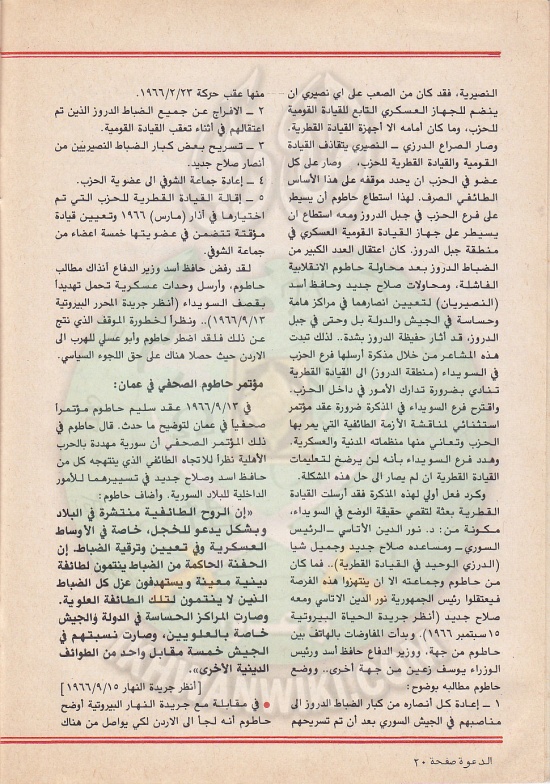 النصيرية، فقد كان من الصعب على اي نصيري ان
ينضم للجهاز العسكري التابع للقيادة القومية
للحزب، وما كان أمامه الا أجهزة القيادة القطرية.
وصار الصراع الدرزي ــ النصيري يتقاذف القيادة
القومية والقيادة القطرية للحزب، وصار على كل
عضو في الحزب ان يحدد موقفه على هذا الأساس
الطائفي الصرف. لهذا استطاع حاطوم أن يسيطر
على فرع الحزب في جبل الدروز ومعه استطاع ان
يسيطر على جهاز القيادة القومية العسكري في
منطقة جبل الدروز. كان اعتقال العدد الكبير من
الضباط الدروز بعد محاولة حاطوم الانقلابية
الفاشلة، ومحاولات صلاح جديد وحافظ أسد
(النصيريان) لتعيين انصارهما في مراكز هامة
وحساسة في الجيش والدولة بل وحتى في جبل
الدروز، قد أثار حفيظة الدروز بشدة.. لذلك تبدت
هذه المشاعر من خلال مذكرة أرسلها فرع الحزب
في السويداء (منطقة الدروز) الى القيادة القطرية
تنادي بضرورة تدارك الأمور في داخل الحزب.
واقترح فرع السويداء في المذكرة ضرورة عقد مؤتمر
استثنائي لمناقشة الأزمة الطائفية التي يمر بها
الحزب وتعاني منها منظماته المدنية والعسكرية.
وهدد فرع السويداء بأنه لن يرضخ لتعليمات
القيادة القطرية ان لم يصار الى حل هذه المشكلة.
وكرد فعل أولي لهذه المذكرة فقد أرسلت القيادة
القطرية بعثة لتقصي حقيقة الوضع في السويداء،
مكونة من: د. نور الدين الأتاسي ــ الرئيس
السوري ــ ومساعده صلاح جديد وجميل شيا
(الدرزي الوحيد في القيادة القطرية).. فما كان
من حاطوم وجماعته الا ان ينتهزوا هذه الفرصة
فيعتقلوا رئيس الجمهورية نور الدين الاتاسي ومعه
صلاح جديد (أنظر جريدة الحياة البيروتية
١٥ سبتمبر ١٩٦٦). وبدأت المفاوضات بالهاتف بين
حاطوم من جهة. ووزير الدفاع حافظ أسد ورئيس
الوزراء يوسف زعين من جهة أخرى.. ووضع
حاطوم مطالبه بوضوح:
١ ــ إعادة كل أنصاره من كبار الضباط الدروز الى
مناصبهم في الجيش السوري بعد أن تم تسريحهم
منها عقب حركة ١٩٦٦/٢/٢٣.
٢ ــ الافراج عن جميع الضباط الدروز الذين تم
اعتقالهم في أثناء تعقب القيادة القومية.
٣ ــ تسريح بعض كبار الضباط النصيريين من
أنصار صلاح جديد.
٤ ــ إعادة جماعة الشوفي الى عضوية الحزب.
٥ ــ إقالة القيادة القطرية للحزب التي تم
اختيارها في آذار (مارس) ١٩٦٦ وتعيين قيادة
مؤقتة تتضمن في عضويتها خمسة اعضاء من
جماعة الشوفي.
لقد رفض حافظ أسد وزير الدفاع آنذاك مطالب
حاطوم، وأرسل وحدات عسكرية تحمل تهديداً
بقصف السويداء (أنظر جريدة المحرر البيروتية
١٩٦٦/٩/١٣).. ونظراً لخطورة الموقف الذي نتج
عن ذلك فلقد اضطر حاطوم وأبو عسلي للهرب الى
الاردن حيث حصلا هناك على حق اللجوء السياسي.
مؤتمر حاطوم الصحفي في عمان:
في ١٩٦٦/٩/١٣ عقد سليم حاطوم مؤتمراً
صحفياً في عمان لتوضيح ما حدث. قال حاطوم في
ذلك المؤتمر الصحفي أن سورية مهددة بالحرب
الأهلية نظراً للاتجاه الطائفي الذي ينتهجه كل من
حافظ أسد وصلاح جديد في تسييرهما للأمور
الداخلية للبلاد السورية. وأضاف حاطوم:
«إن الروح الطائفية منتشرة في البلاد
وبشكل يدعو للخجل، خاصة في الأوساط
العسكرية وفي تعيين وترقية الضباط. إن
الحفنة الحاكمة من الضباط ينتمون لطائفة
دينية معينة ويستهدفون عزل كل الضباط
الذين لا ينتمون لتلك الطائفة العلوية.
وصارت المراكز الحساسة في الدولة والجيش
خاصة بالعلويين، وصارت نسبتهم في
الجيش خمسة مقابل واحد من الطوائف
الدينية الأخرى».
[أنظر جريدة النهار ١٩٦٦/٩/١٥]
● في مقابلة مع جريدة النهار البيروتية أوضح
حاطوم أنه لجأ الى الاردن لكي يواصل من هناك
الدعوة صفحة ٢٠